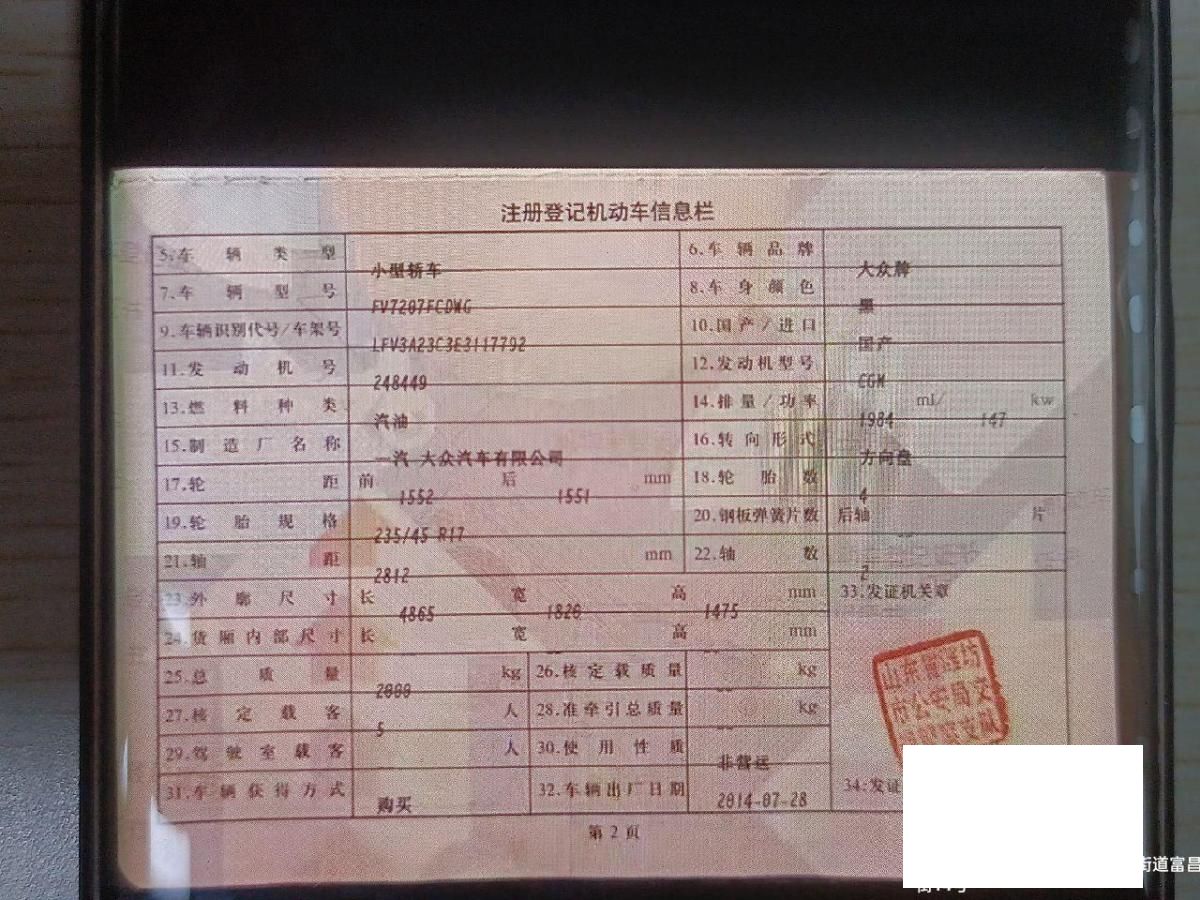 注册登记机动车信息栏
5.车辆类型 小型轿车 6.车辆品牌 大众牌
7.车辆型号 FV7207FCDWG 8.车身颜色 黑
9.车辆识别代号/车架号 LFV3A23C3E3117792 10.国产/进口 国产
11.发动机号 248449 12.发动机型号 CGM
13.燃料种类 汽油 14.排量/功率 1984 ml/ 147 kw
15.制造厂名称 一汽-大众汽车有限公司 16.转向形式 方向盘
17.轮距 前 1552 后 1551 mm 18.轮胎数 4
19.轮胎规格 235/45 R17 20.钢板弹簧片数 后轴 -- 片
21.轴距 2812 mm 22.轴数 2
23.外廓尺寸 长 4865 宽 1820 高 1475 mm 33.发证机关章
24.货厢内部尺寸 长 宽 高 mm
25.总质量 2000 kg 26.核定载质量 -- kg
27.核定载客 5 人 28.准牵引总质量 -- kg
29.驾驶室载客 人 30.使用性质 非营运
31.车辆获得方式 购买 32.车辆出厂日期 2014-07-28 34.发证
山东省潍坊
市公安局交
支队
第 2 页
街道富昌